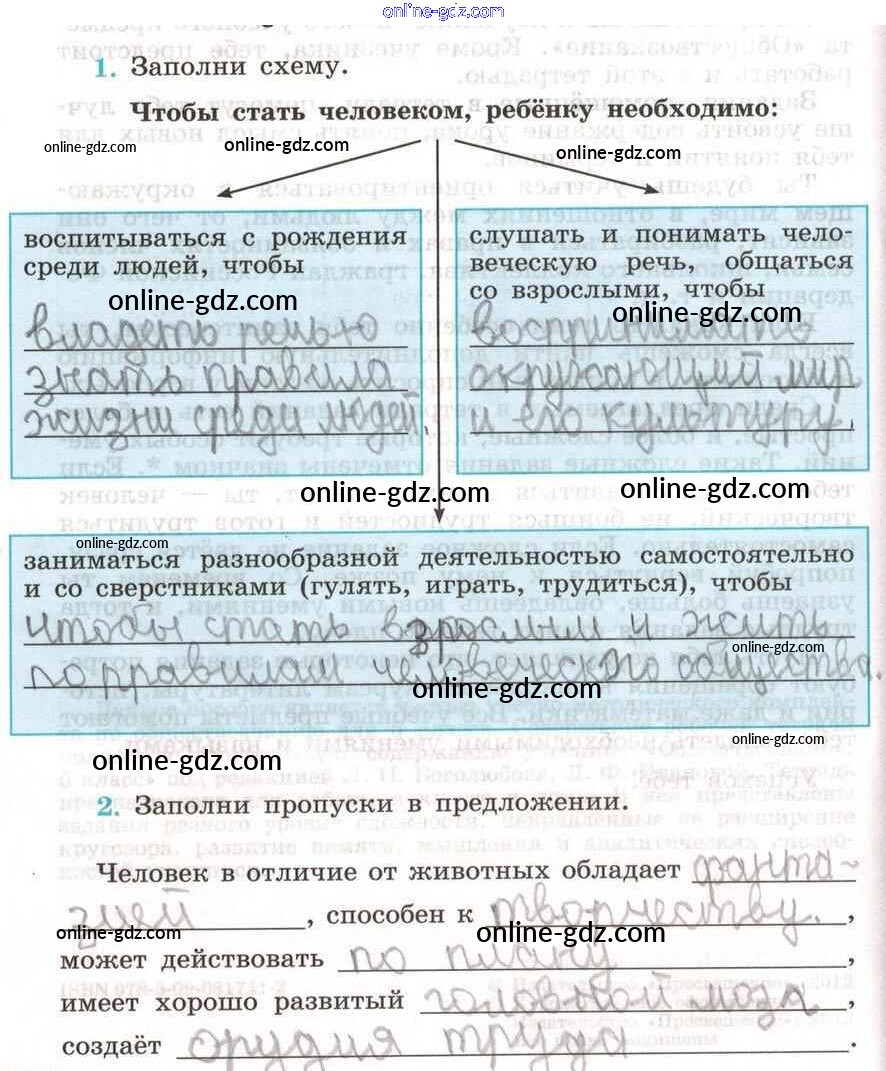 online-gdz.com
1. Заполни схему.
Чтобы стать человеком, ребёнку необходимо:
online-gdz.com
online-gdz.com
online-gdz.com
воспитываться с рождения
среди людей, чтобы
online-gdz.com
владеть речью
знать правила
жизни среди людей.
слушать и понимать чело-
веческую речь, общаться
со взрослыми, чтобы
online-gdz.com
воспринимать
окружающий мир
и его культуру.
online-gdz.com
online-gdz.com
online-gdz.com
заниматься разнообразной деятельностью самостоятельно
и со сверстниками (гулять, играть, трудиться), чтобы
чтобы стать взрослым и жить
online-gdz.com
по правилам человеческого общества.
online-gdz.com
online-gdz.com
online-gdz.com
2. Заполни пропуски в предложении.
Человек в отличие от животных обладает фанта-
зией, способен к творчеству,
online-gdz.com
online-gdz.com
может действовать по плану,
имеет хорошо развитый головной мозг,
создаёт орудия труда.